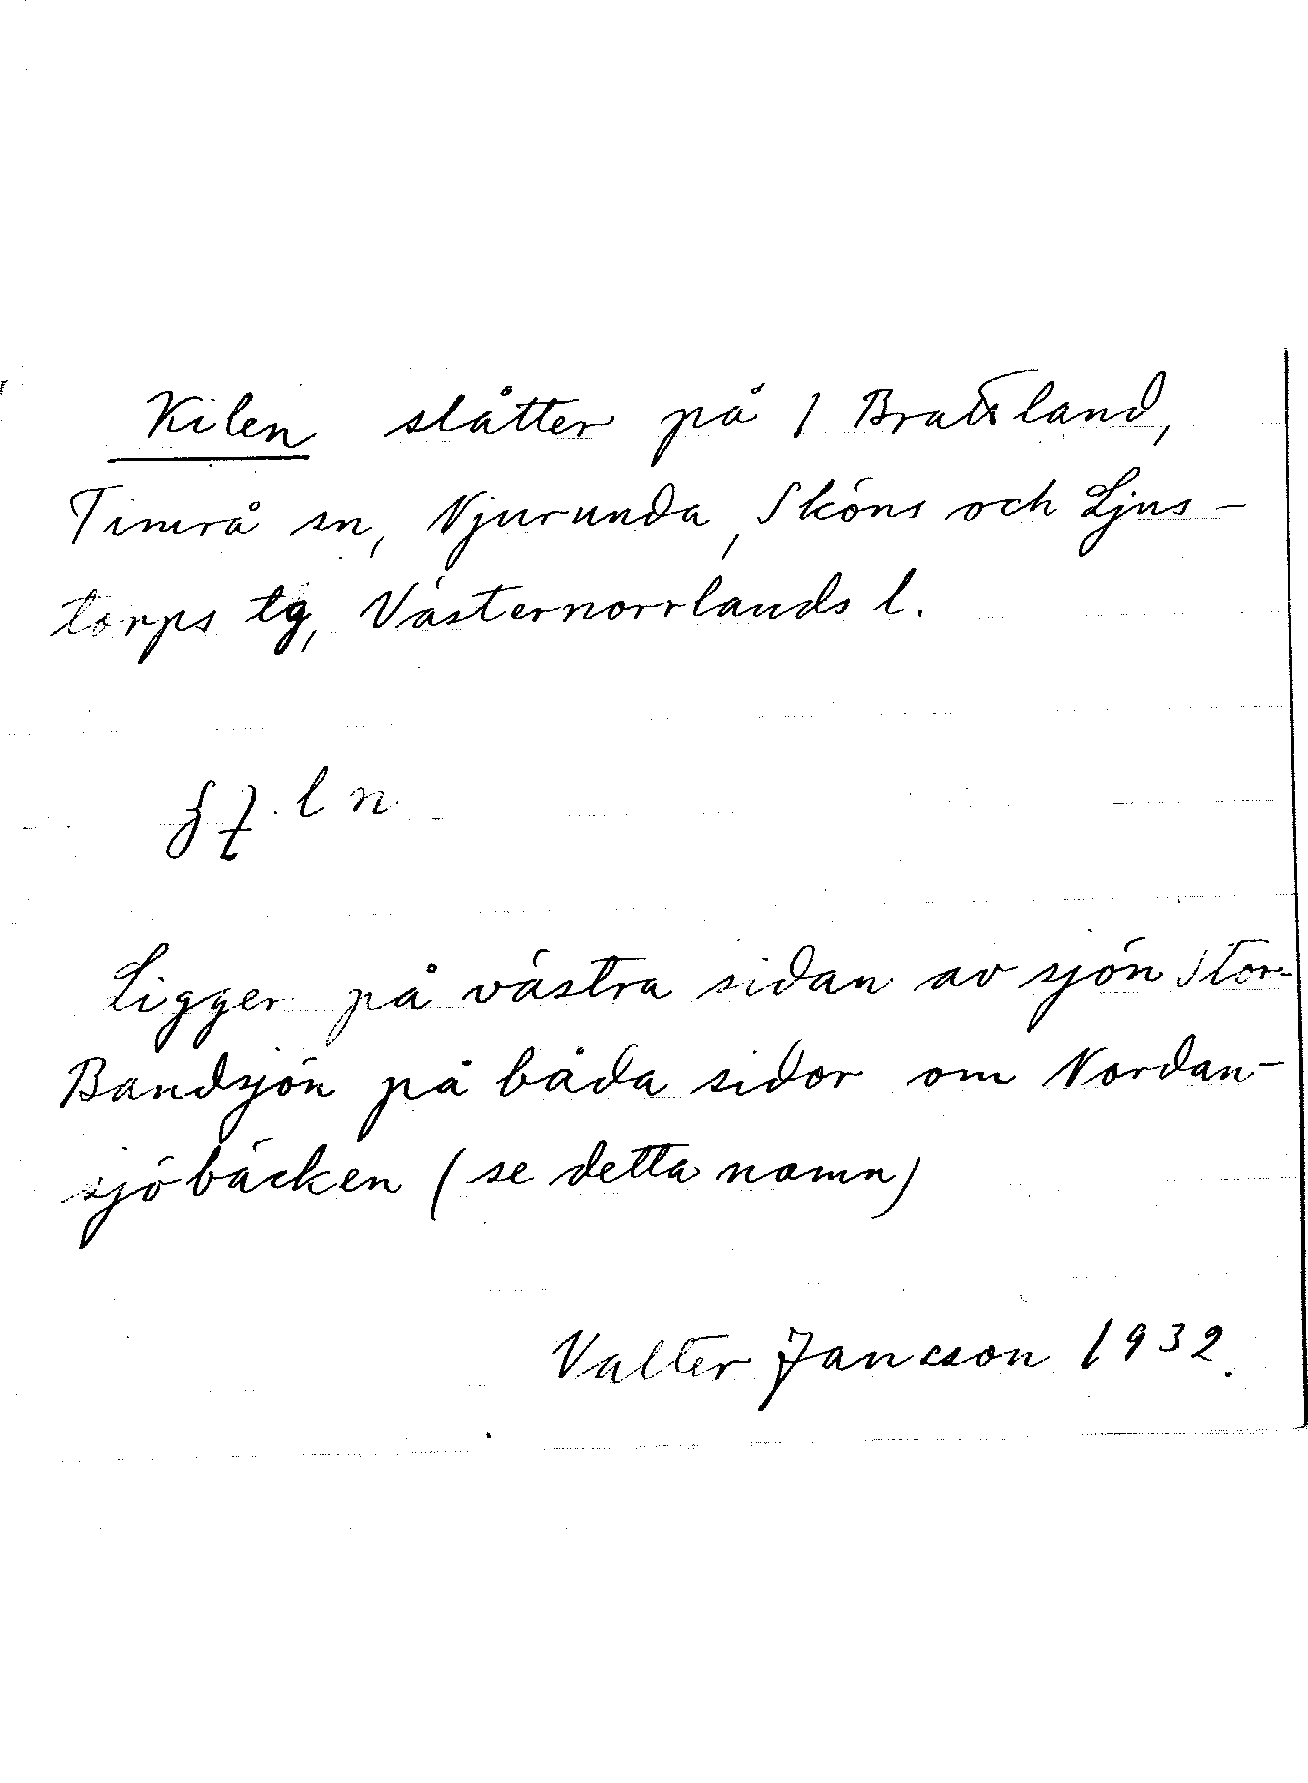 Kilen slåtter på 1 Brattland,
Timrå sn, Njurunda, Sköns och Ljus-
torps tg, Västernorrlands l.
Ligger på västra sidan av sjön Stor-
Bandsjön på båda sidor om Nordan-
sjöbäcken (se detta namn)
Valter Jansson 1932.